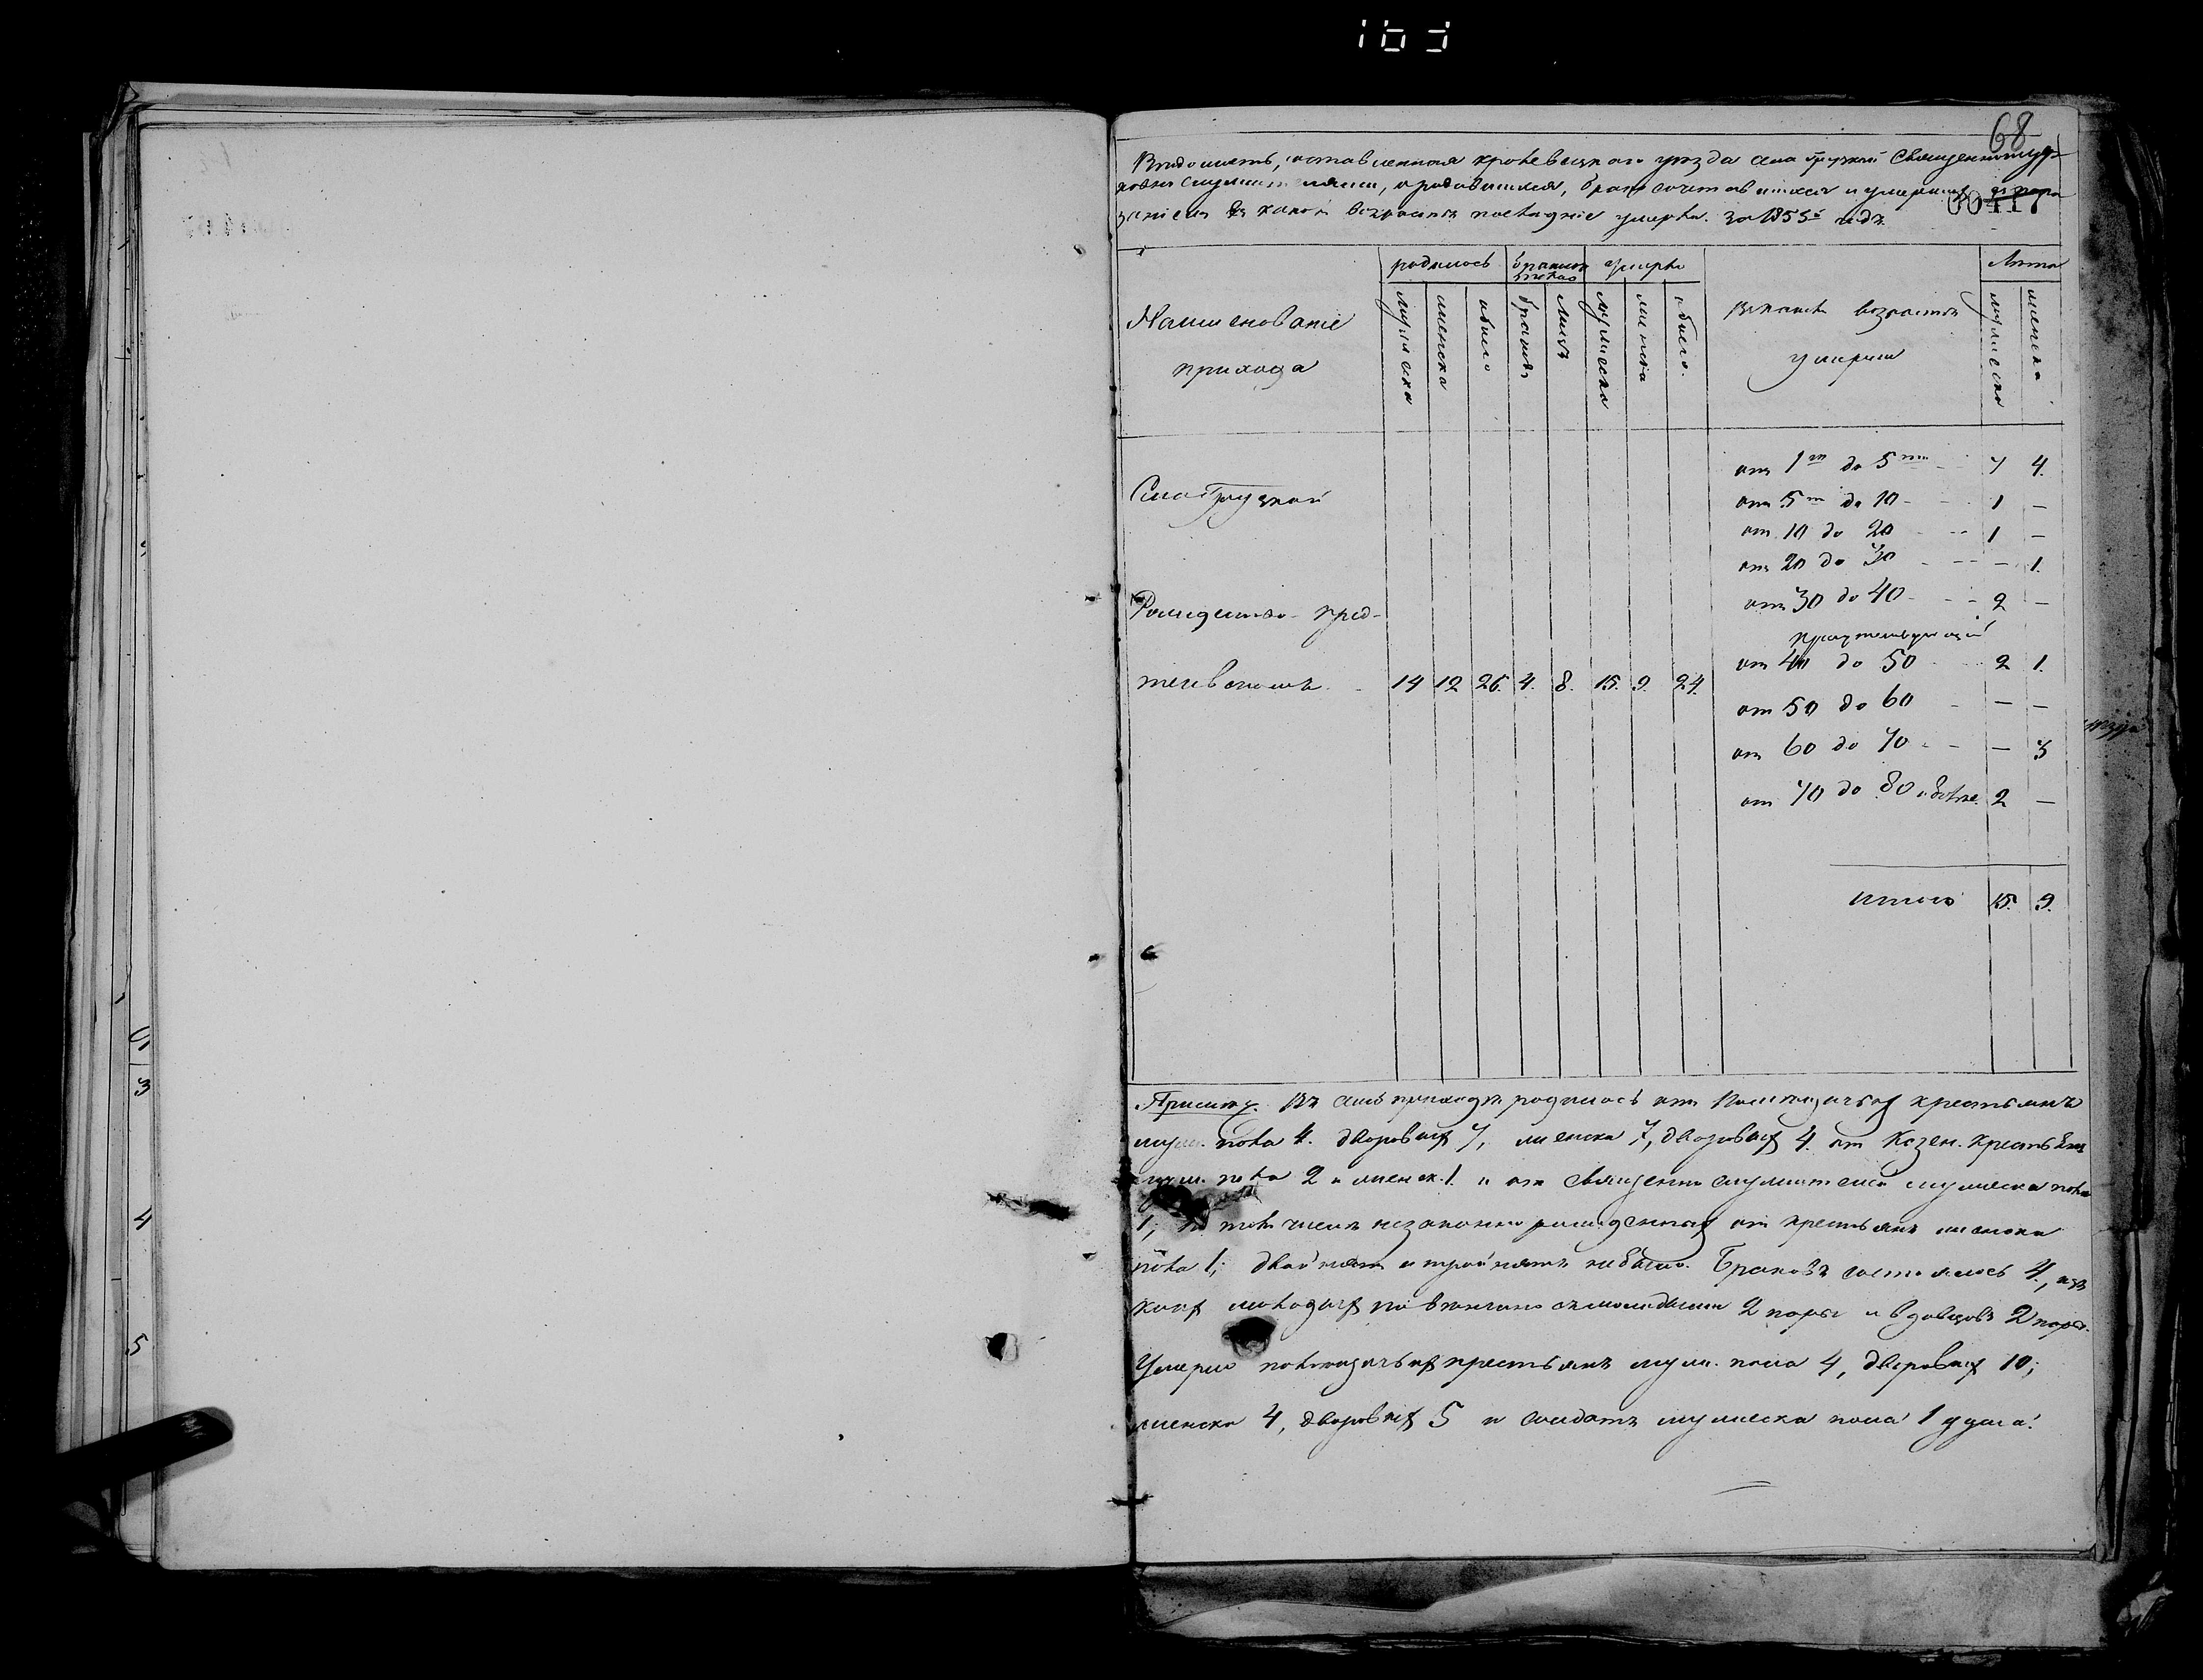 163
68
Вѣдомость, составленная Кролевецкаго уѣзда села Грузкой Священноцер
ковно служителями, о родившихся, браксочетавшихся и умершихъ
въ какомъ возрастѣ послѣдніе умерли. за 1855й годъ.
00417
родилось умерло Лѣта
Наименованіе прихода
мужеска женска обоего браковъ лицъ мужеска женска обоего.
въ какомъ возрастѣ умерли
мужеска женска
отъ 1го до 5ти 7 4.
Села Грузкой
отъ 5ти до 10 1 —
от 10 до 20 1 —
отъ 20 до 30 — 1.
Рождество-Пред-
отъ 30 до 40 2 —
от 40 до 50 2 1.
течевскомъ 14 12 26. 4. 8. 15. 9. 24.
от 50 до 60 — —
от 60 до 70 — 3
от 70 до 80 и болѣе. 2 —
Итого 15. 9.
Примѣч. Въ семъ приходѣ родилось отъ помѣщичьихъ крестьянъ
муж. пола 4. дворовыхъ 7, женска 7, дворовыхъ 4. от Казен. крестьянъ
муж. пола 2 и женск. 1. и отъ священно служителей мужеска пола
1; въ томъ числѣ незаконно рожденныхъ от крестьянъ женска
пола 1; двойнятъ и тройнятъ небыло. Браковъ состоялось 4., изъ
коихъ молодыхъ повѣнчано съ молодыми 2 пары и вдовцовъ 2 пары.
Умерло помѣщичьихъ крестьянъ муж. пола 4, дворовыхъ 10;
женска 4, дворовыхъ 5 и солдатъ мужеска пола 1 душа.
3
4
5